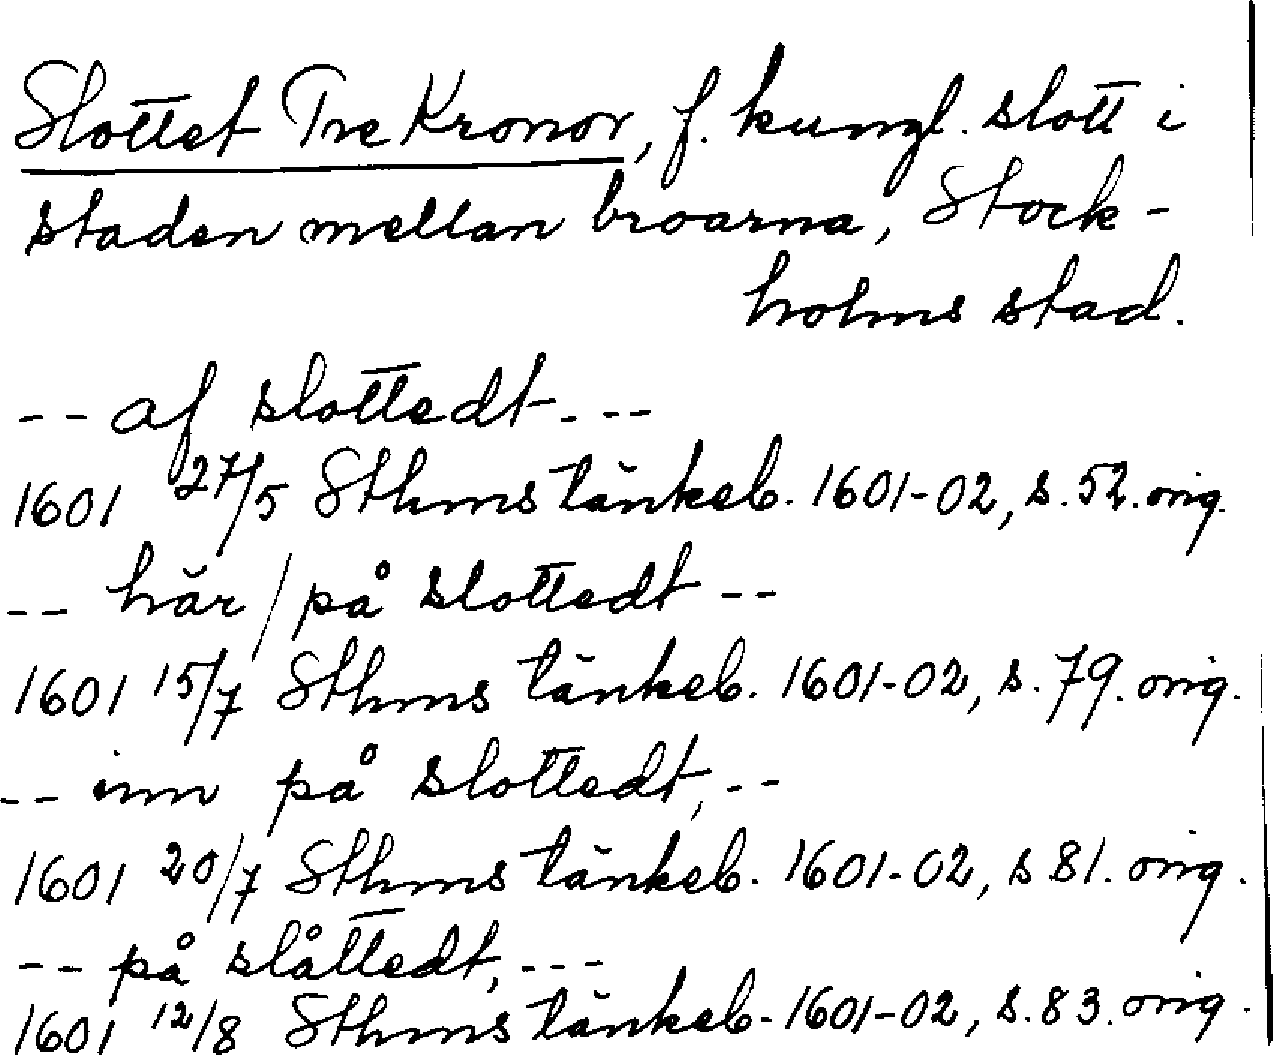 Slottet Tre Kronor, f. kungl. slott i
staden mellan broarna, Stock-
holms stad.
-- af slottedt ---
1601 27/5 Sthms tänkeb. 1601-02, s. 52. orig.
-- här / på slottedt --
1601 15/7 Sthms tänkeb. 1601-02, s. 79. orig.
-- inn på slottedt, --
1601 20/7 Sthms tänkeb. 1601-02, s 81. orig.
-- på slåttedt, ---
1601 12/8 Sthms tänkeb. 1601-02, s. 83. orig.